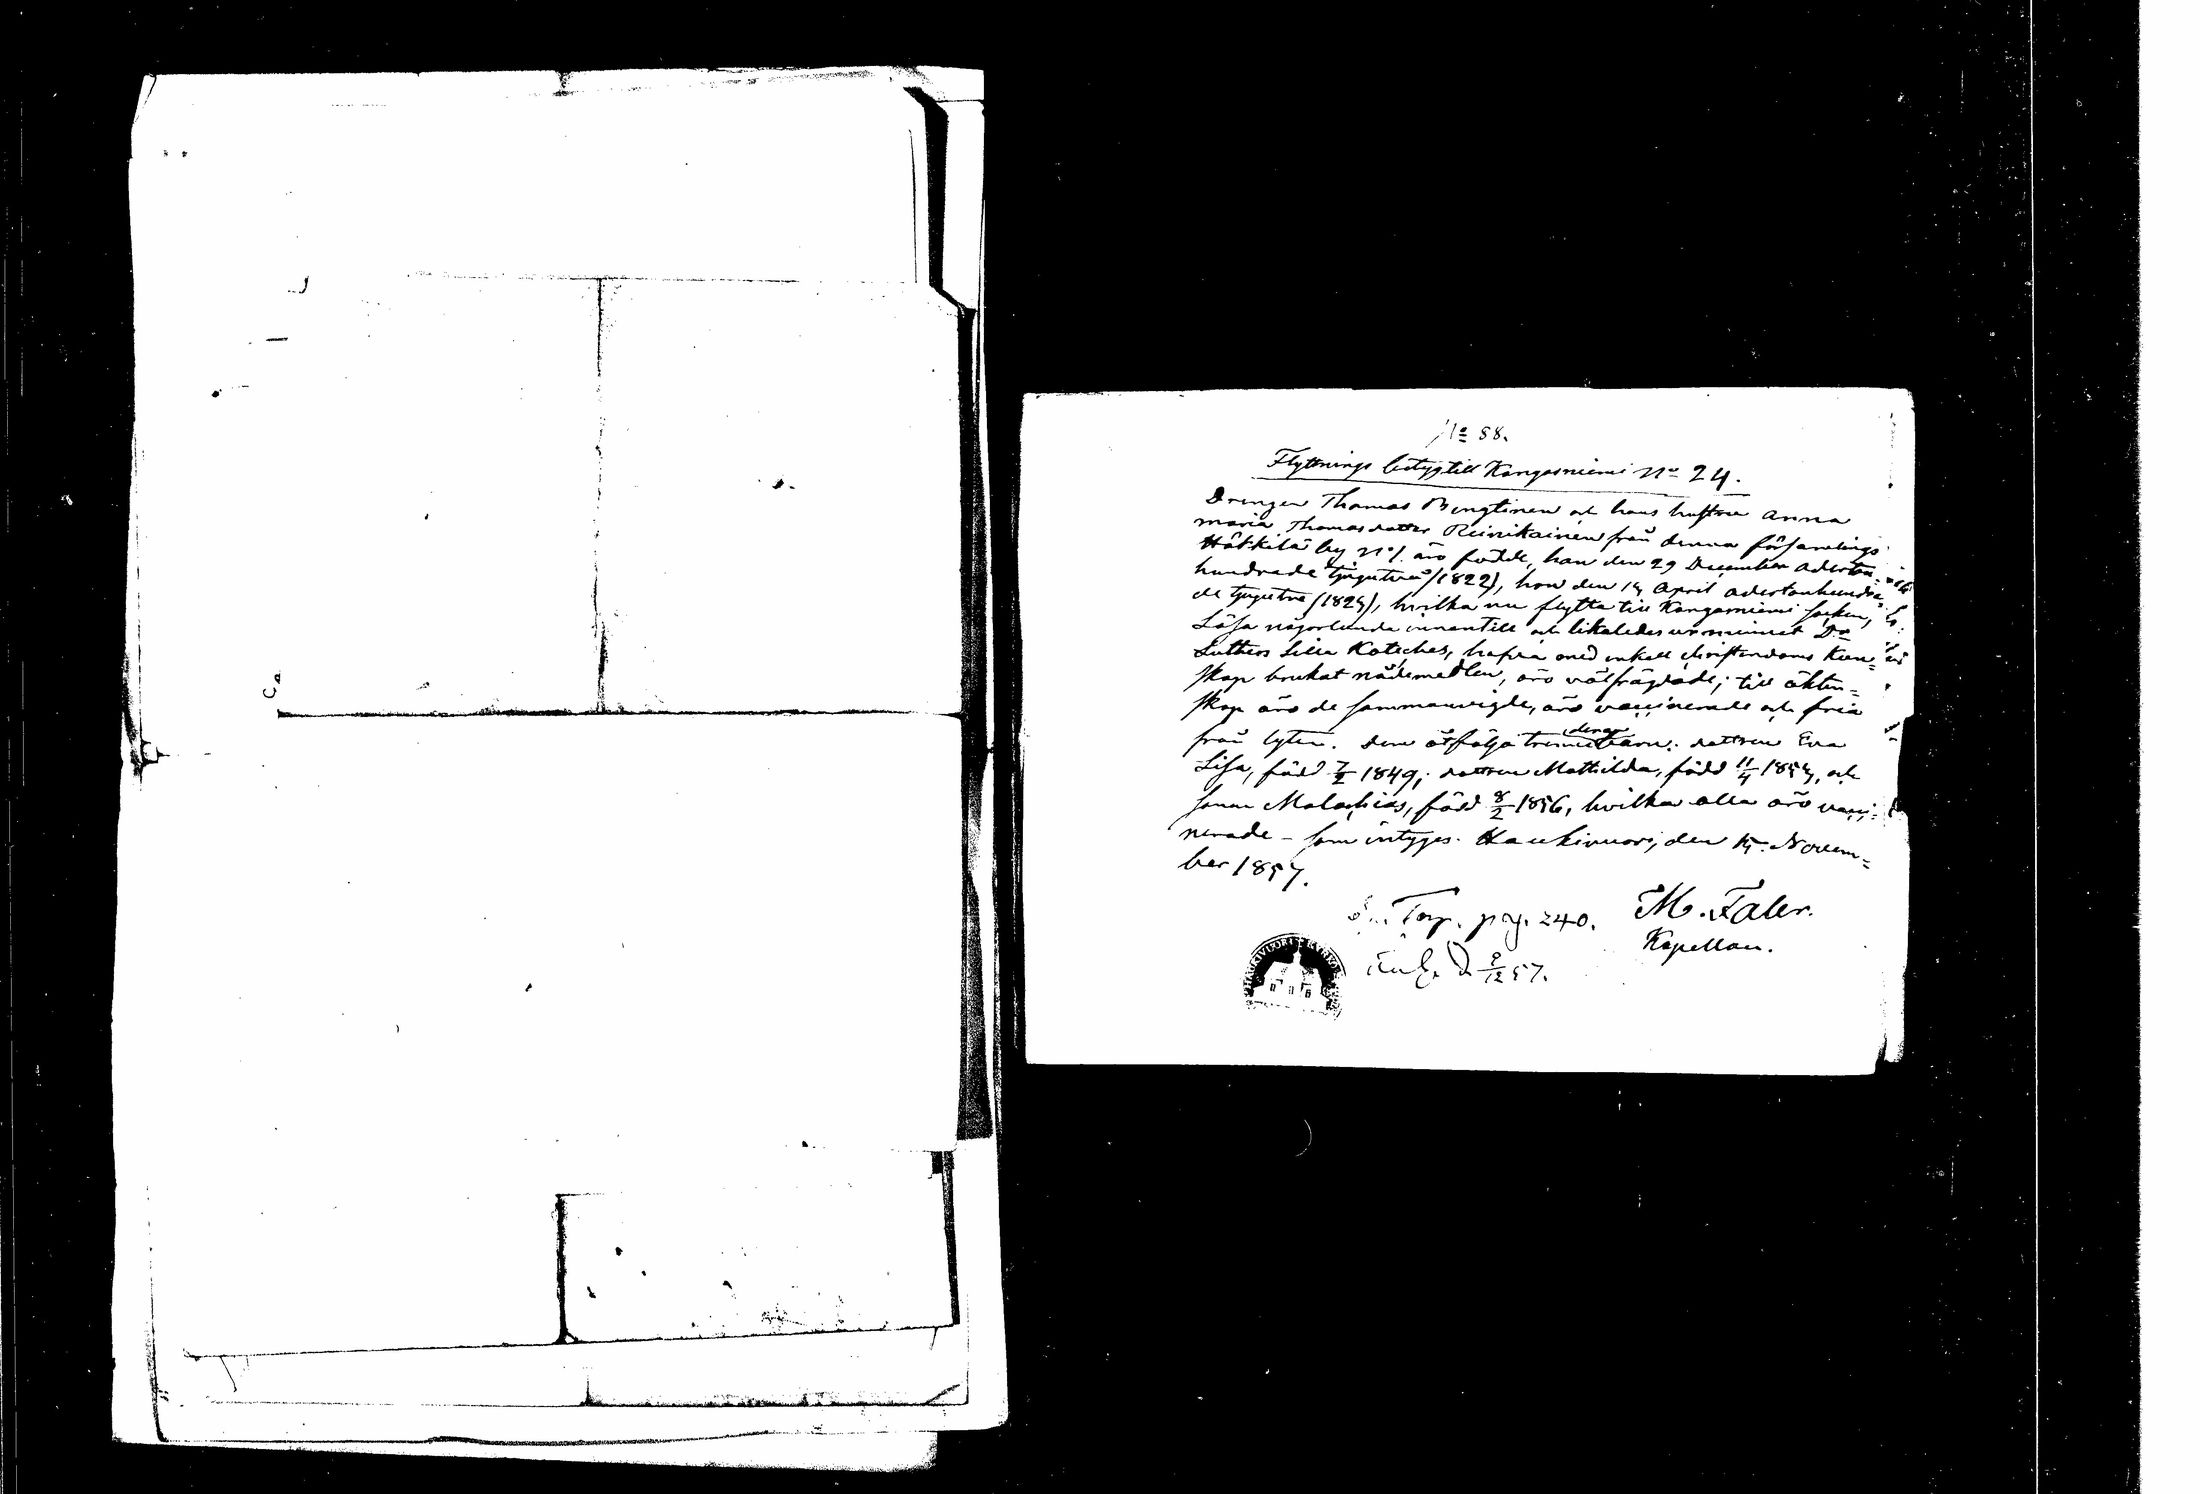 No 58.
Flyttnings betyg till Kangasniemi No 24.
Drengen Thomas Pengtinen och hans hustru Anna
Maria Thomasdotter Reinikainen från denna församlings
Häkkilä by No 1. äro födde, han den 29 December aderton=
hundrade tjugutvå (1822), hon den 14 April adertonhundra=
de tjugutre (1823), hvilka nu flytta till Kangasniemi socken,
Läsa någorlunda innantill och likaledes ur minnet Dr
Luthers Lilla Kateches, hafva med enkell christendoms kun=
skap brukat nådemedlen, äro välfrägdade; till äkten=
skap äro de sammanvigde, äro vaccinerade och fria
från lyten. Dem åtfölja trenne deras barn: dottren Eva
Lisa, född 7/2 1849; dottren Mathilda, född 11/4 1853, och
sonen Malachias, född 8/2 1856, hvilka alla äro vacci=
nerade – som intygas. Haukivuori, den 15 Novem=
ber 1857.
M. Faler.
Kapellan.
Torp. pag. 240.
d 2/12 57.